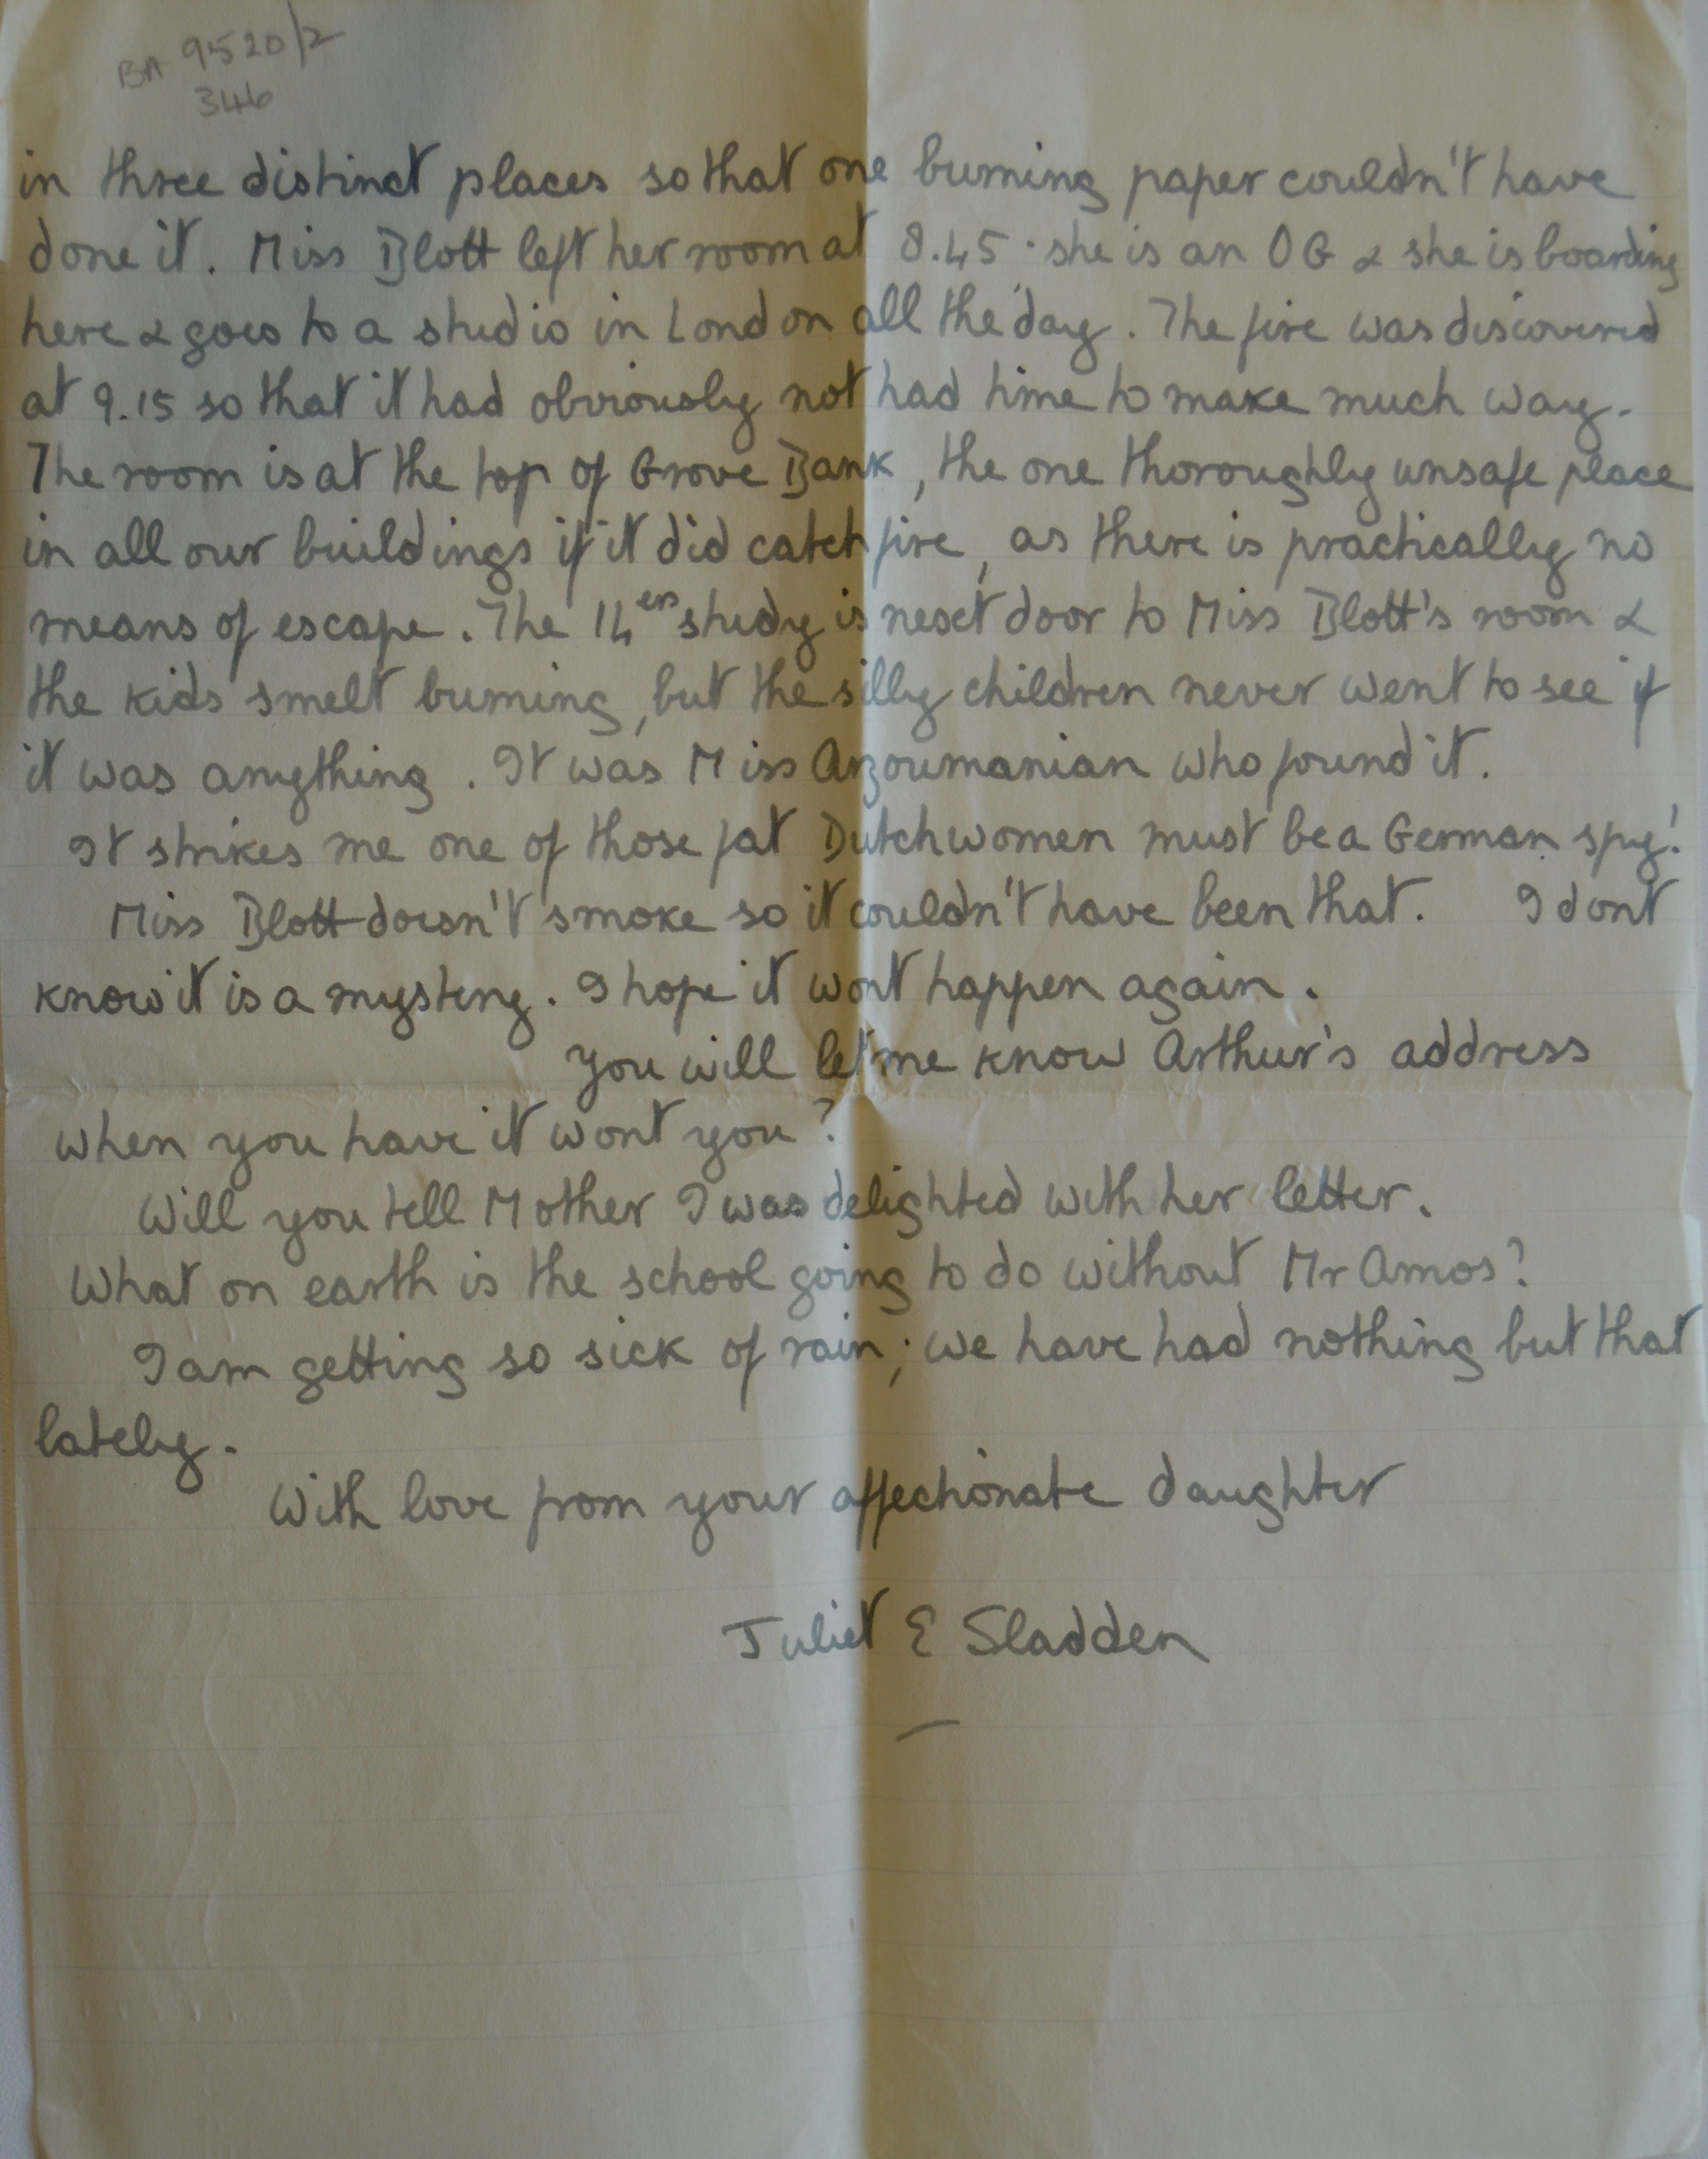 BA 9520/2
346
in three distinct places so that one burning paper couldn't have
done it. Miss Blott left her room at 8.45 · she is an OG & she is boarding
here & goes to a studio in London all the day. The fire was discovered
at 9.15 so that it had obviously not had time to make much way.
The room is at the top of Grove Bank, the one thoroughly unsafe place
in all our buildings if it did catch fire, as there is practically no
means of escape. The 14ers study is next door to Miss Blott's room &
the kids smelt burning, but the silly children never went to see if
it was anything. It was Miss Arzoumanian who found it.
It strikes me one of those fat Dutchwomen must be a German spy!
Miss Blott doesn't smoke so it couldn't have been that. I dont
know it is a mystery. I hope it wont happen again.
You will let me know Arthur's address
when you have it wont you?
Will you tell Mother I was delighted with her letter.
What on earth is the school going to do without Mr Amos?
I am getting so sick of rain; we have had nothing but that
lately.
With love from your affectionate daughter
Juliet E Sladden